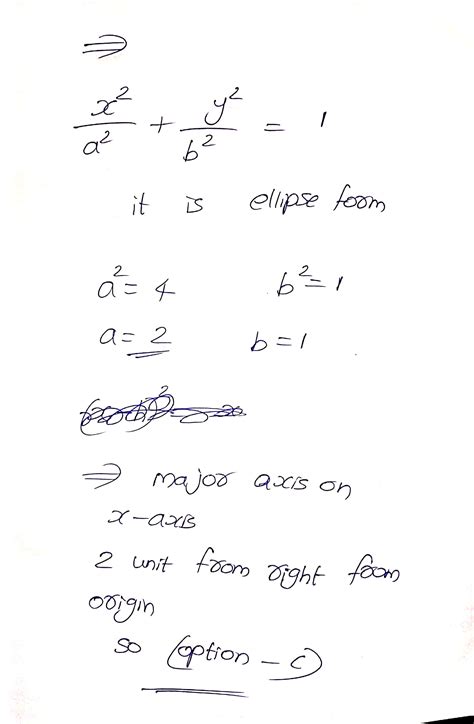 ⇒
x²/a² + y²/b² = 1
it is ellipse form
a² = 4 b² = 1
a = 2 b = 1
⇒ major axis on
x-axis
2 unit from right from
origin
so (option - c)